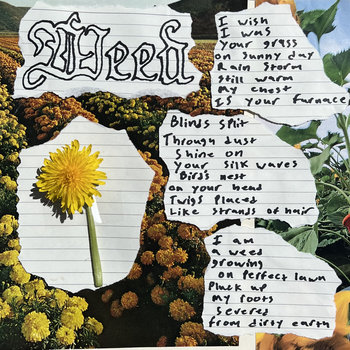 Weed
I wish
I was
your grass
on sunny day
Rain storm
Still warm
my chest
Is your furnace
Blinds split
Through dust
Shine on
Your silk waves
Bird's nest
on your head
Twigs Placed
Like strands of hair
I am
a weed
growing
on perfect lawn
Pluck up
my roots
Severed
from dirty earth